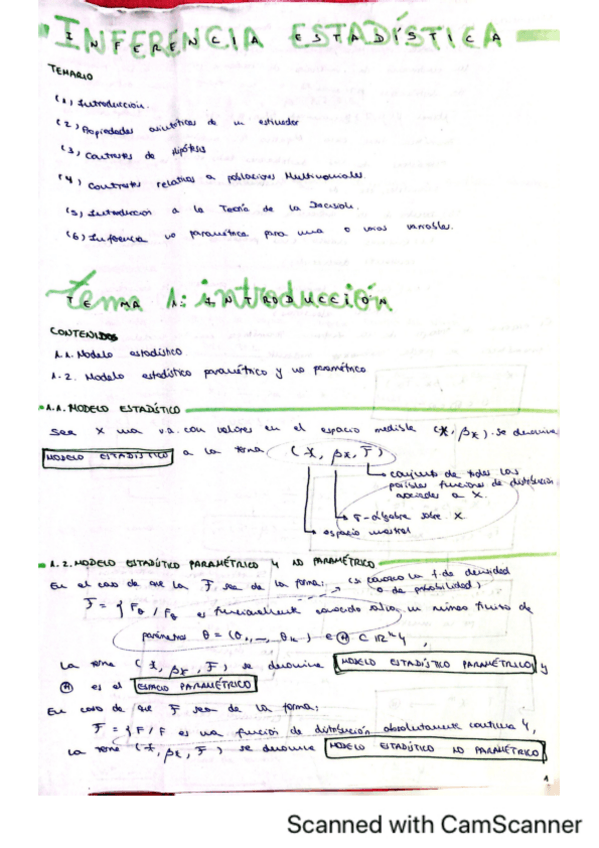 INFERENCIA ESTADÍSTICA
TEMARIO
(1) Introducción.
(2) Propiedades asintóticas de un estimador
(3) Contrastes de hipótesis
(4) Contrastes relativos a poblaciones Multinomiales.
(5) Introducción a la Teoría de la Decisión.
(6) Inferencia no paramétrica para una o varias variables.
Tema 1: introducción
TEMA 1: INTRODUCCIÓN
CONTENIDOS
1.1. Modelo estadístico
1.2. Modelo estadístico paramétrico y no paramétrico
1.1. MODELO ESTADÍSTICO
Sea X una v.a. con valores en el espacio medible (X, βx). Se denomina
MODELO ESTADÍSTICO a la terna (X, βx, F)
conjunto de todas las
posibles funciones de distribución
asociadas a X.
σ-álgebra sobre X.
espacio muestral
1.2. MODELO ESTADÍSTICO PARAMÉTRICO Y NO PARAMÉTRICO
En el caso de que la F sea de la forma: (ó función de densidad
o de probabilidad)
F = { Fθ / Fθ es funcionalmente conocida salvo un número finito de
parámetros θ = (θ1, ..., θk) ∈ Θ ⊂ IR^k },
la terna (X, βx, F) se denomina MODELO ESTADÍSTICO PARAMÉTRICO y
Θ es el ESPACIO PARAMÉTRICO
En caso de que F sea de la forma:
F = { F / F es una función de distribución absolutamente continua },
la terna (X, βx, F) se denomina MODELO ESTADÍSTICO NO PARAMÉTRICO
1
Scanned with CamScanner